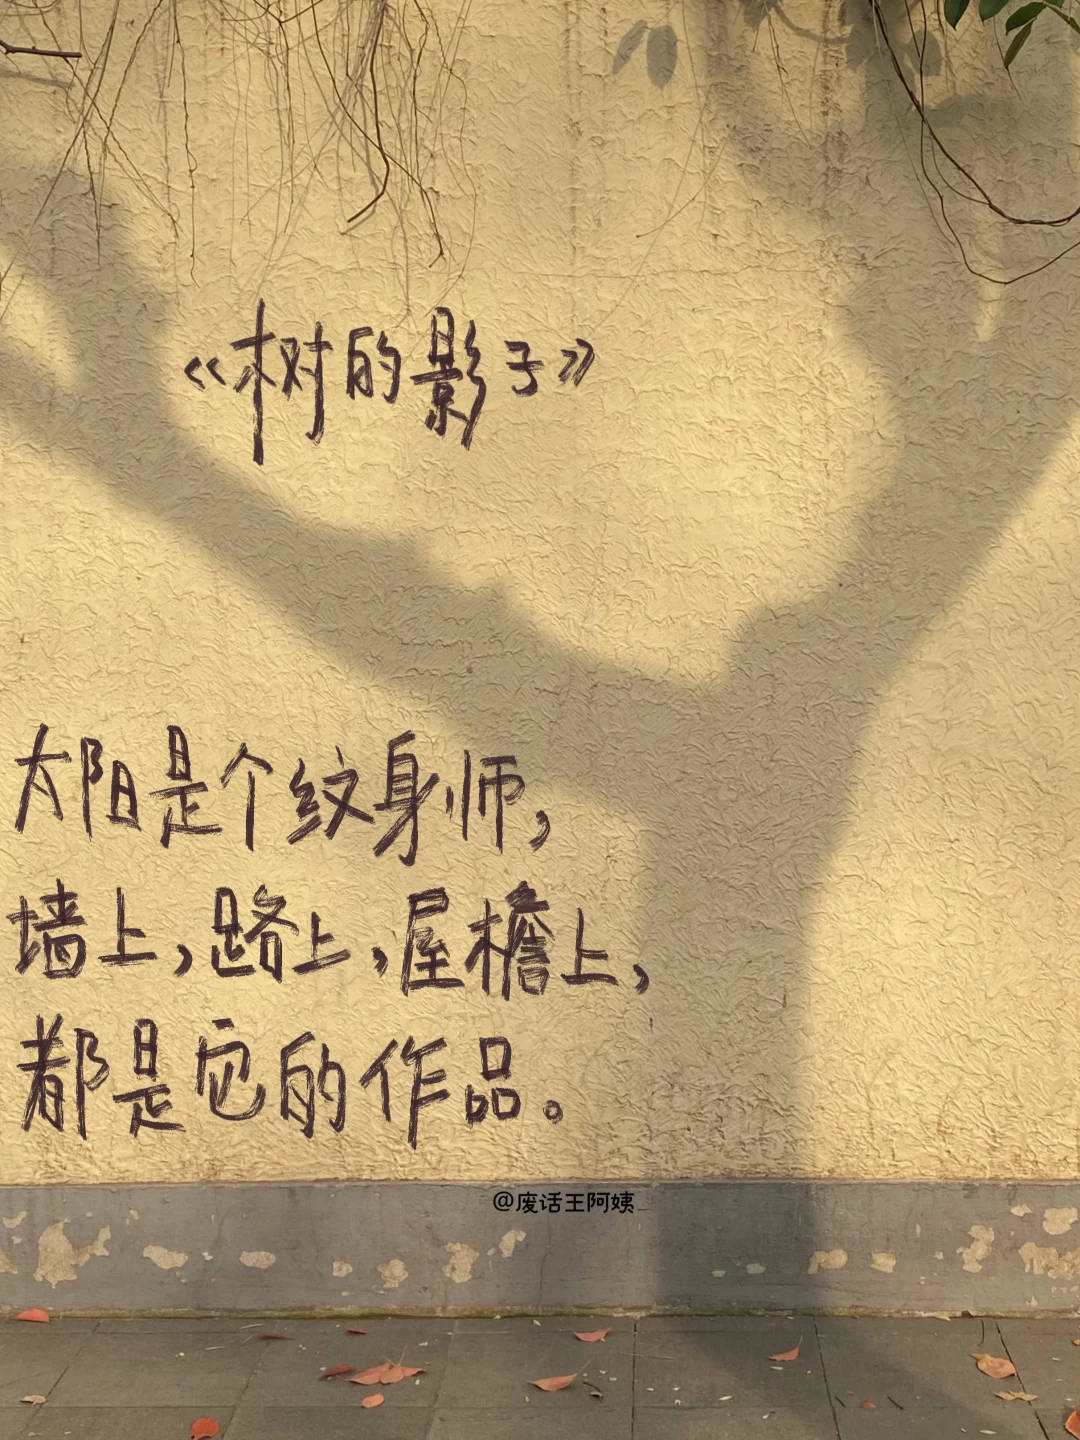 《树的影子》
太阳是个纹身师,
墙上,路上,屋檐上,
都是它的作品。
@废话王阿姨